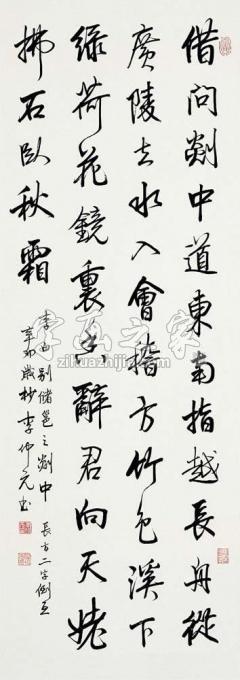 借問剡中道東南指越長舟從
廣陵去水入會稽方竹色溪下
綠荷花鏡裏香辭君向天姥
拂石臥秋霜
李白別儲邕之剡中 長方二字倒互
辛卯歲杪李仲元書
字画之家